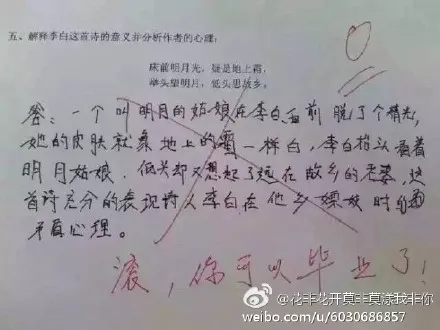 五、解释李白这首诗的意义并分析作者的心理:
0
床前明月光,疑是地上霜,
举头望明月,低头思故乡。
答:一个叫明月的姑娘在李白面前脱了个精光,
她的皮肤就象地上的霜一样白,李白抬头看着
明月姑娘,低头却又想起了远在故乡的老婆,这
首诗充分的表现诗人李白在他乡嫖妓时的
矛盾心理。
滚,你可以毕业了!
@花非花开莫非莫漾我非你
weibo.com/u/6030686857